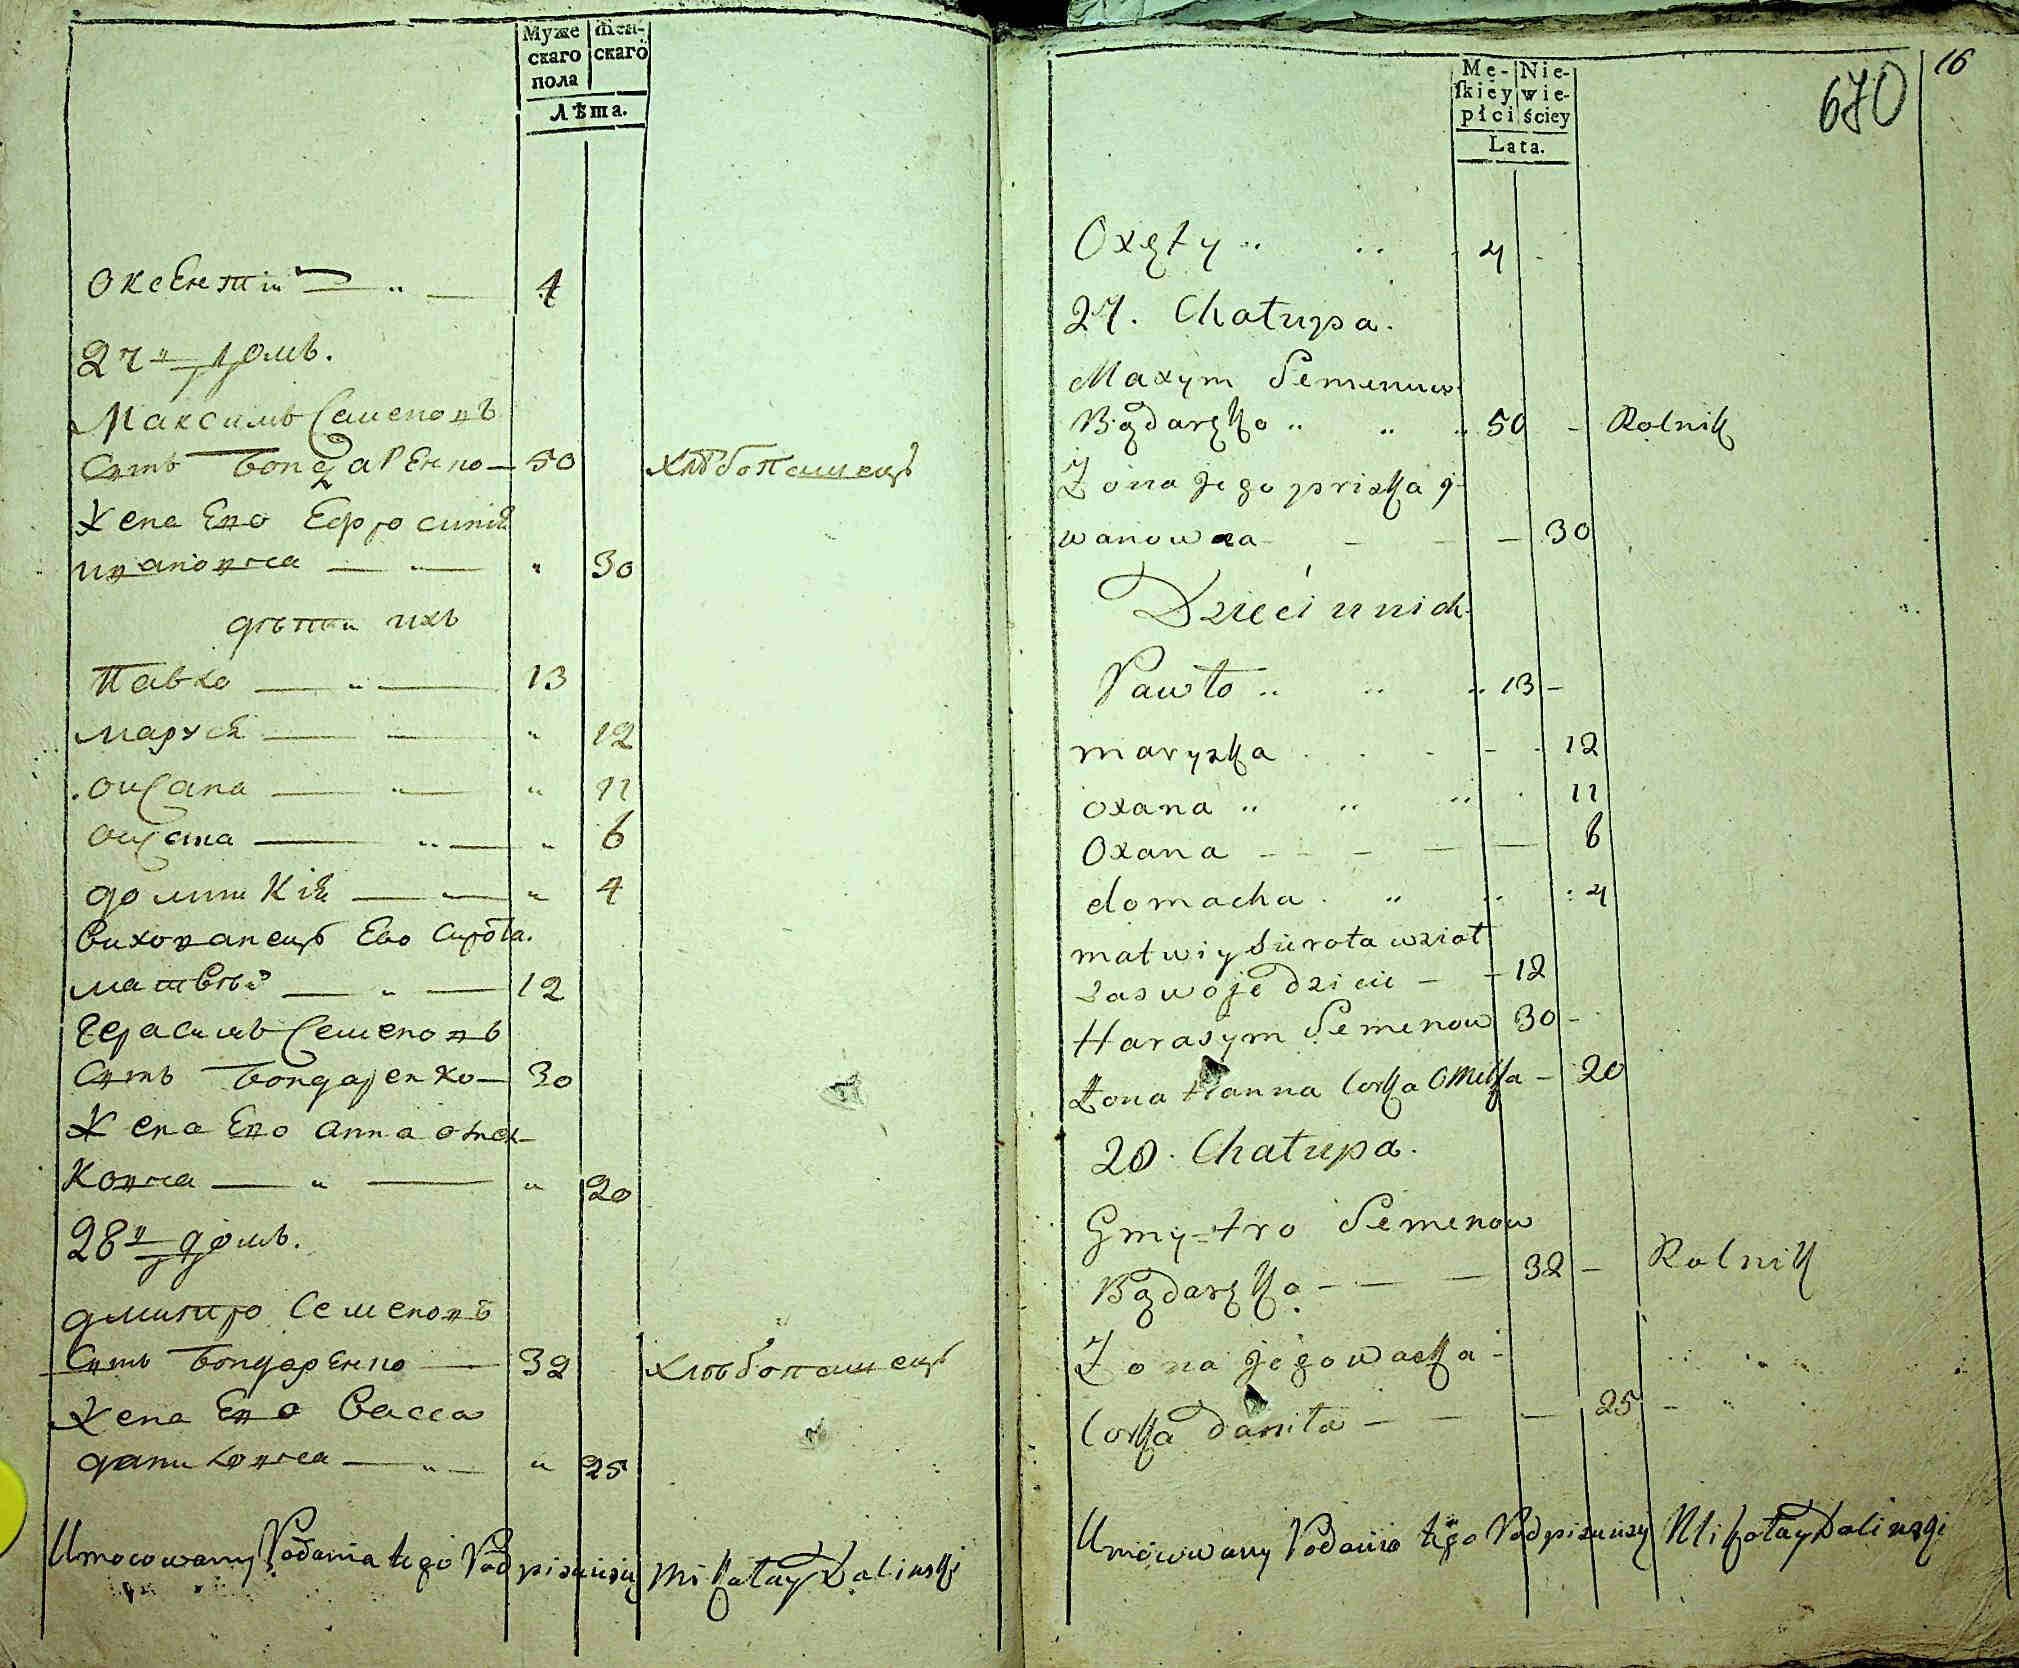 Муже
скаго
пола
Жен-
скаго
Лѣта.
Оксентій 4
27й домъ.
Максимъ Семеновъ
Сынъ Бондаренко 50 Хлѣбопашецъ
Жена Его Ефросинія
Ивановна 30
дѣти ихъ
Павло 13
Маруся 12
Оксана 11
Оксана 6
Домникія 4
Вихованецъ Его Сирота
Матвѣй 12
Герасимъ Семеновъ
Сынъ Бондаренко 30
Жена Его Анна
20
28й домъ.
Дмитро Семеновъ
Сынъ Бондаренко 32 Хлѣбопашецъ
Жена Его Васса
Даниловна 25
Umocowany Podania tego Podpisuię Mikołay Dalinski
16
670
Mę-
skiey
płci
Nie-
wie-
ściey
Lata.
Oxęty 4
27. Chałupa.
Maxym Semenow
Bądaręko 50 Rolnik
Żona jego priska J-
wanowna 30
Dzieci u nich
Pawło 13
maryska 12
oxana 11
Oxana 6
domacha 4
matwiy Surota wzioł
za swoje dziecie 12
Harasym Semenow 30
Żona Hanna Corka Omelka 20
28. Chałupa.
Gmy=tro Semenow
Bądaręko 32 Rolnik
Żona jego waska
Corka daniła 25
Umocowany Podania tego Podpisuię Mikołay Dalinsqi